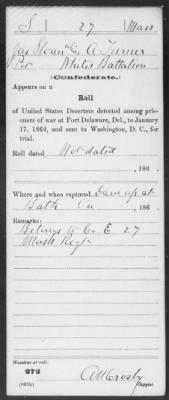 S 27 Mass
Jas Sloan alias A Turner
Pvt White's Battalion
(Confederate.)
Appears on a
Roll
of United States Deserters detected among pris-
oners of war at Fort Delaware, Del., to January
17, 1864, and sent to Washington, D. C., for
trial.
Roll dated Not dated
, 186 .
Where and when captured Gave up at
Bath Va , 186 .
Remarks:
Belongs to Co E. 27
Mass Regt
Number on roll:
272
Crosby
Copyist.